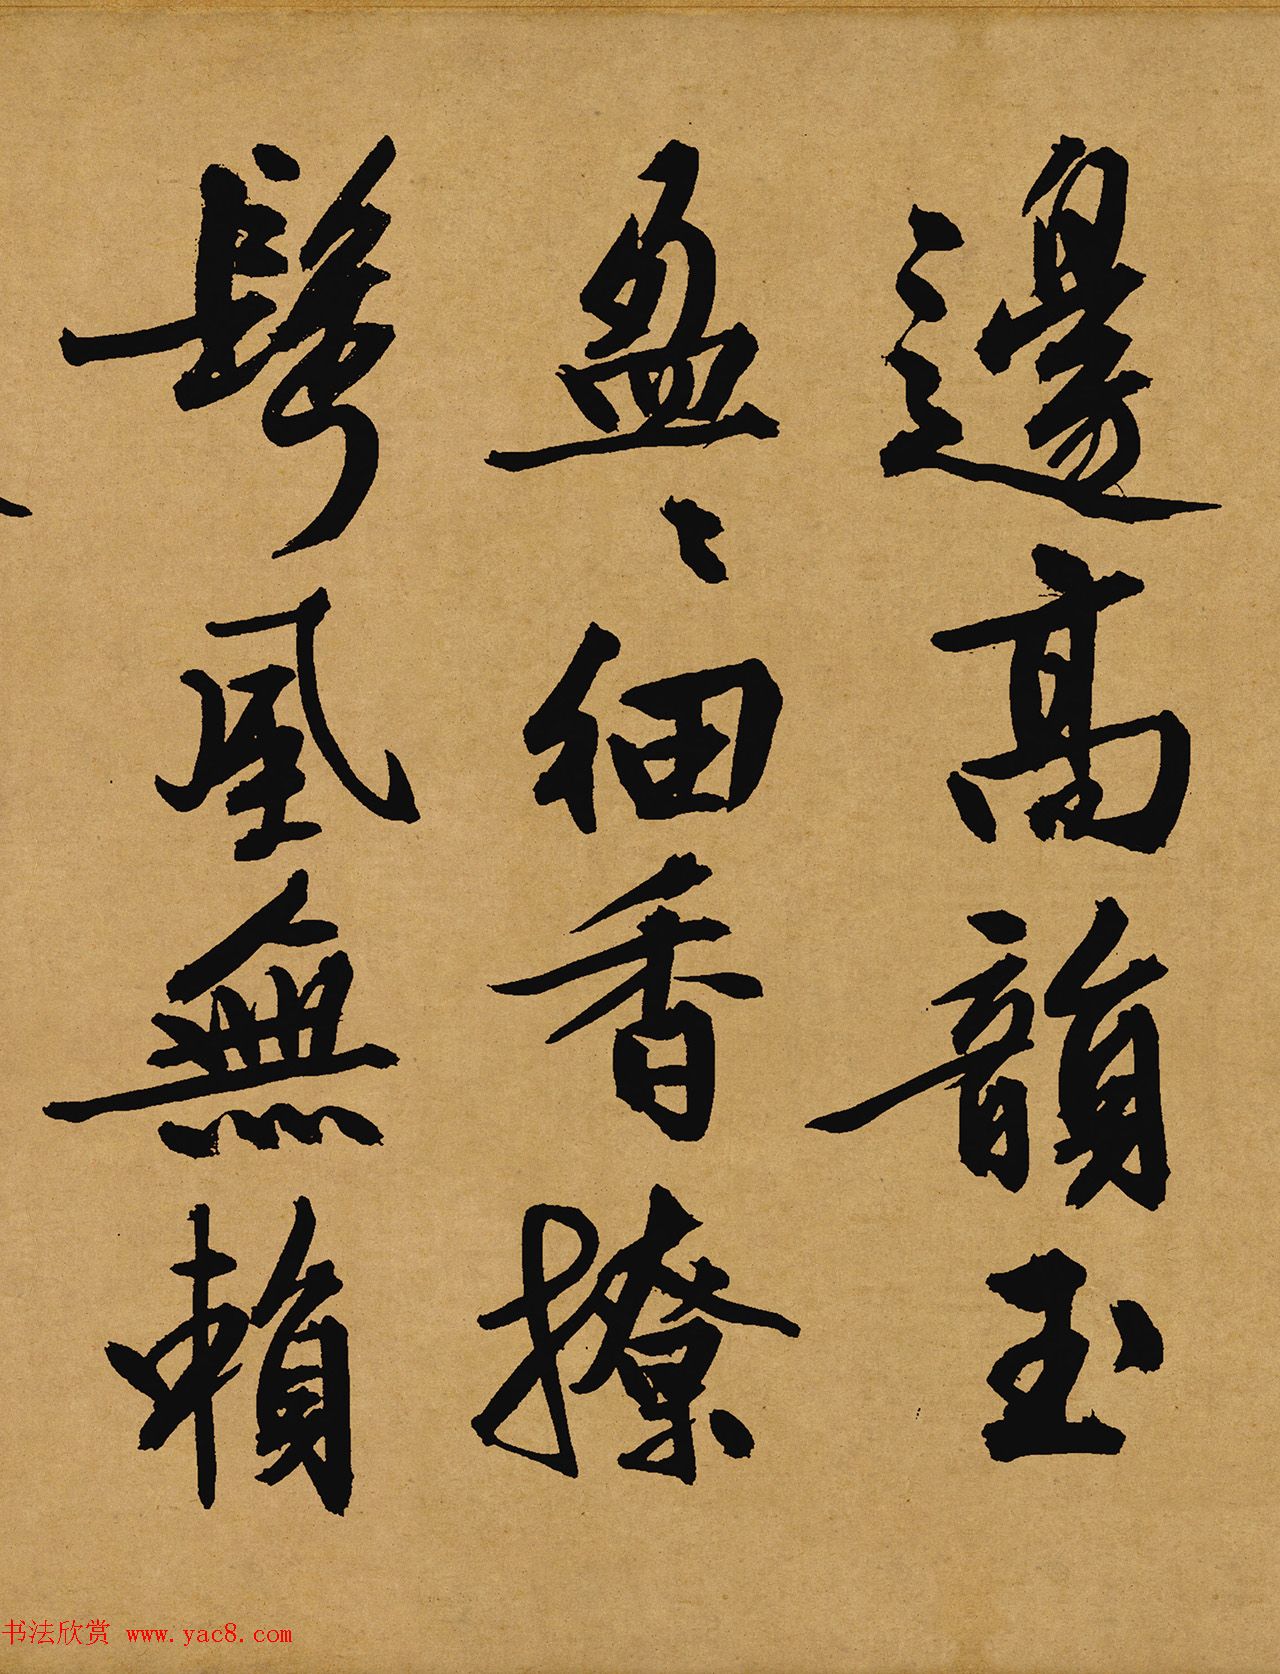 邊高韻玉
盈〻細香撩
鬢風無賴
书法欣赏 www.yac8.com